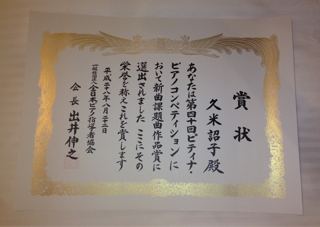 賞状
久米詔子殿
あなたは第四十回ピティナ・
ピアノコンペティションに
おいて新曲課題曲作品賞に
選出されました ここにその
栄誉を称えこれを賞します
平成二十八年八月二十二日
一般社団法人全日本ピアノ指導者協会
会長 出井伸之